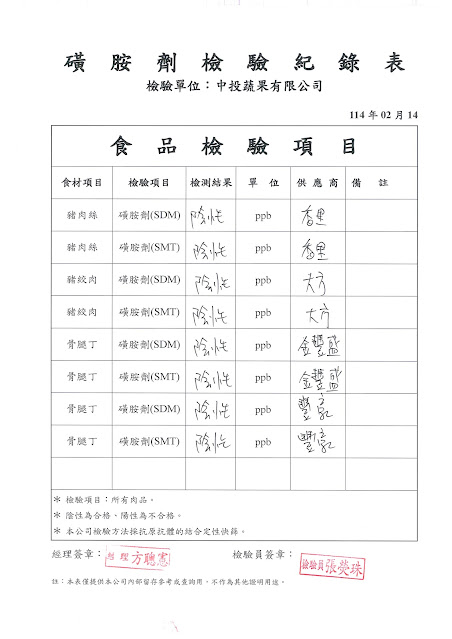 磺胺劑檢驗紀錄表
檢驗單位：中投蔬果有限公司
114 年 02 月 14
食品檢驗項目
食材項目 檢驗項目 檢測結果 單位 供應商 備註
豬肉絲 磺胺劑(SDM) 陰性 ppb 香里
豬肉絲 磺胺劑(SMT) 陰性 ppb 香里
豬絞肉 磺胺劑(SDM) 陰性 ppb 大方
豬絞肉 磺胺劑(SMT) 陰性 ppb 大方
骨腿丁 磺胺劑(SDM) 陰性 ppb 金豐盛
骨腿丁 磺胺劑(SMT) 陰性 ppb 金豐盛
骨腿丁 磺胺劑(SDM) 陰性 ppb 豐
骨腿丁 磺胺劑(SMT) 陰性 ppb 豐
＊ 檢驗項目：所有肉品。
＊ 陰性為合格，陽性為不合格。
＊ 本公司檢驗方法採抗原抗體的結合定性快篩。
經理簽章： 經理 方聰憲 檢驗員簽章： 檢驗員 張熒珠
註：本表僅提供本公司內部留存參考或查詢用，不作為其他證明用途。